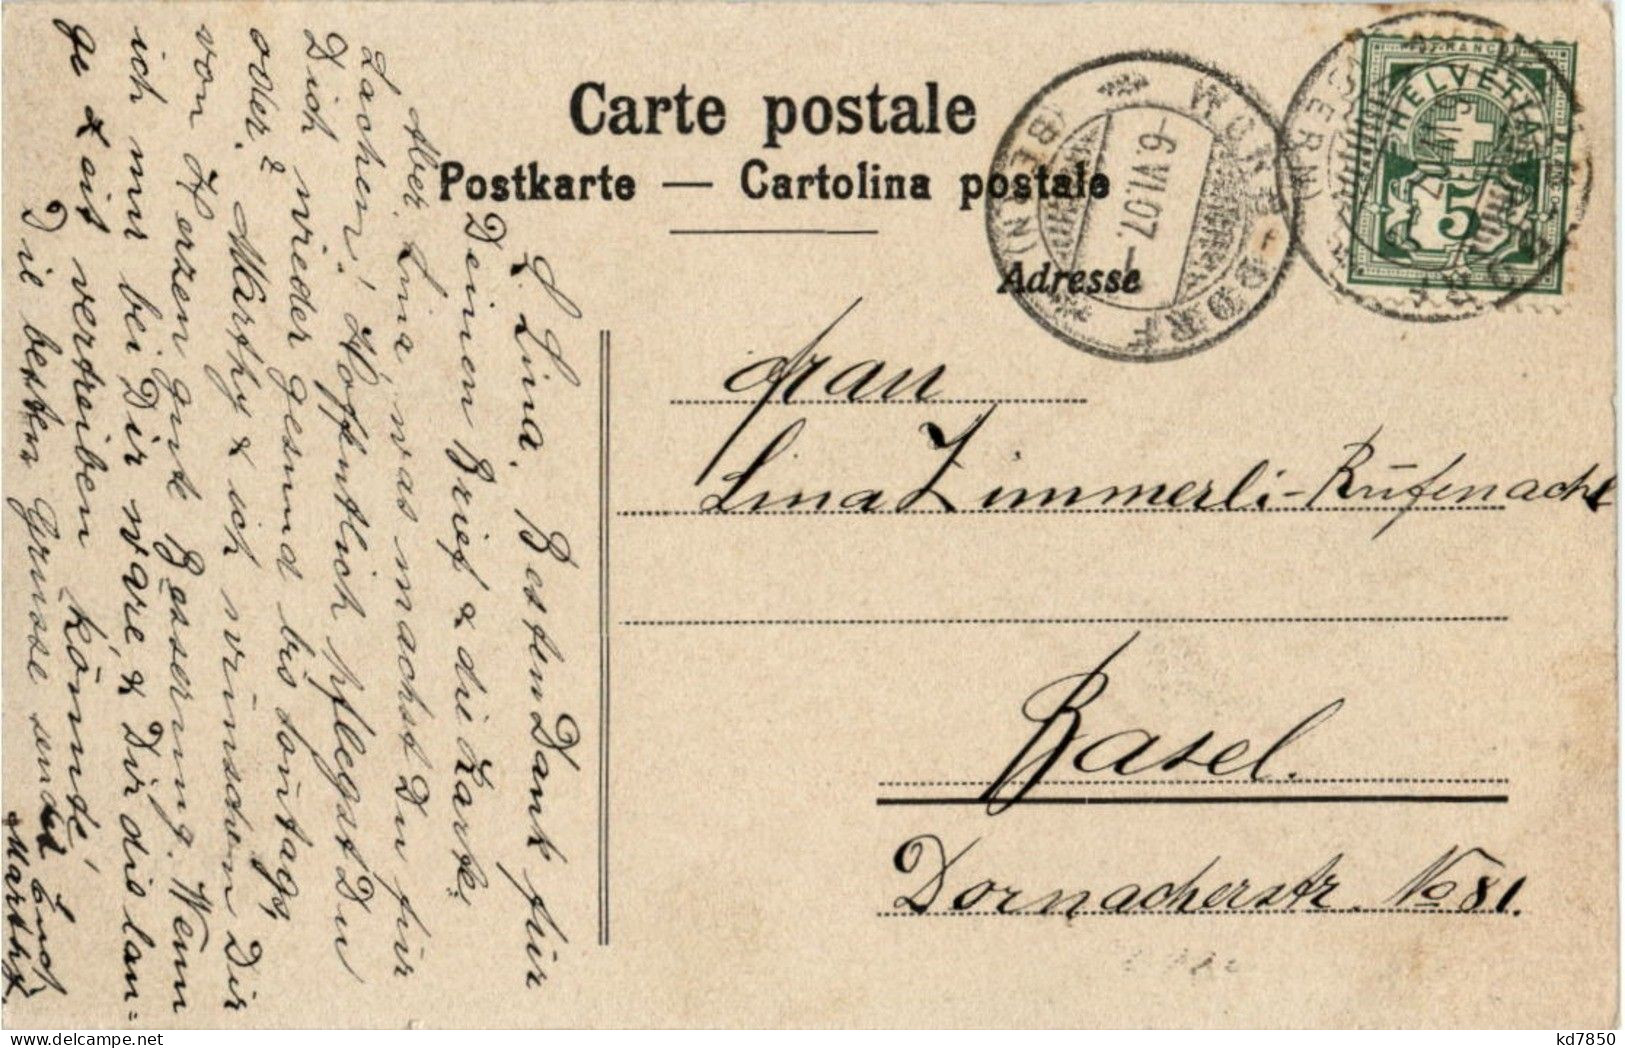 Carte postale
Postkarte — Cartolina postale
Adresse
WORB-DORF
(BERN)
-6.VI.07.-
FRANCO
HELVETIA
5
(BERN)
Frau
Lina Zimmerli-Rüfenacht
Basel.
Dornacherstr. No 81.
L. Lina. Besten Dank für
Deinen Brief & die Karte.
Aber Lina, was machst Du für
Sachen! Hoffentlich pflegst Du
Dich wieder gesund bis sontags,
oder? Marthy & ich wünschen Dir
von Herzen gute Besserung. Wenn
ich nur bei Dir wäre, & Dir die lan=
ge Zeit vertreiben könnte!
Die besten Grüsse sendet Euch
Marthy.
kd7850